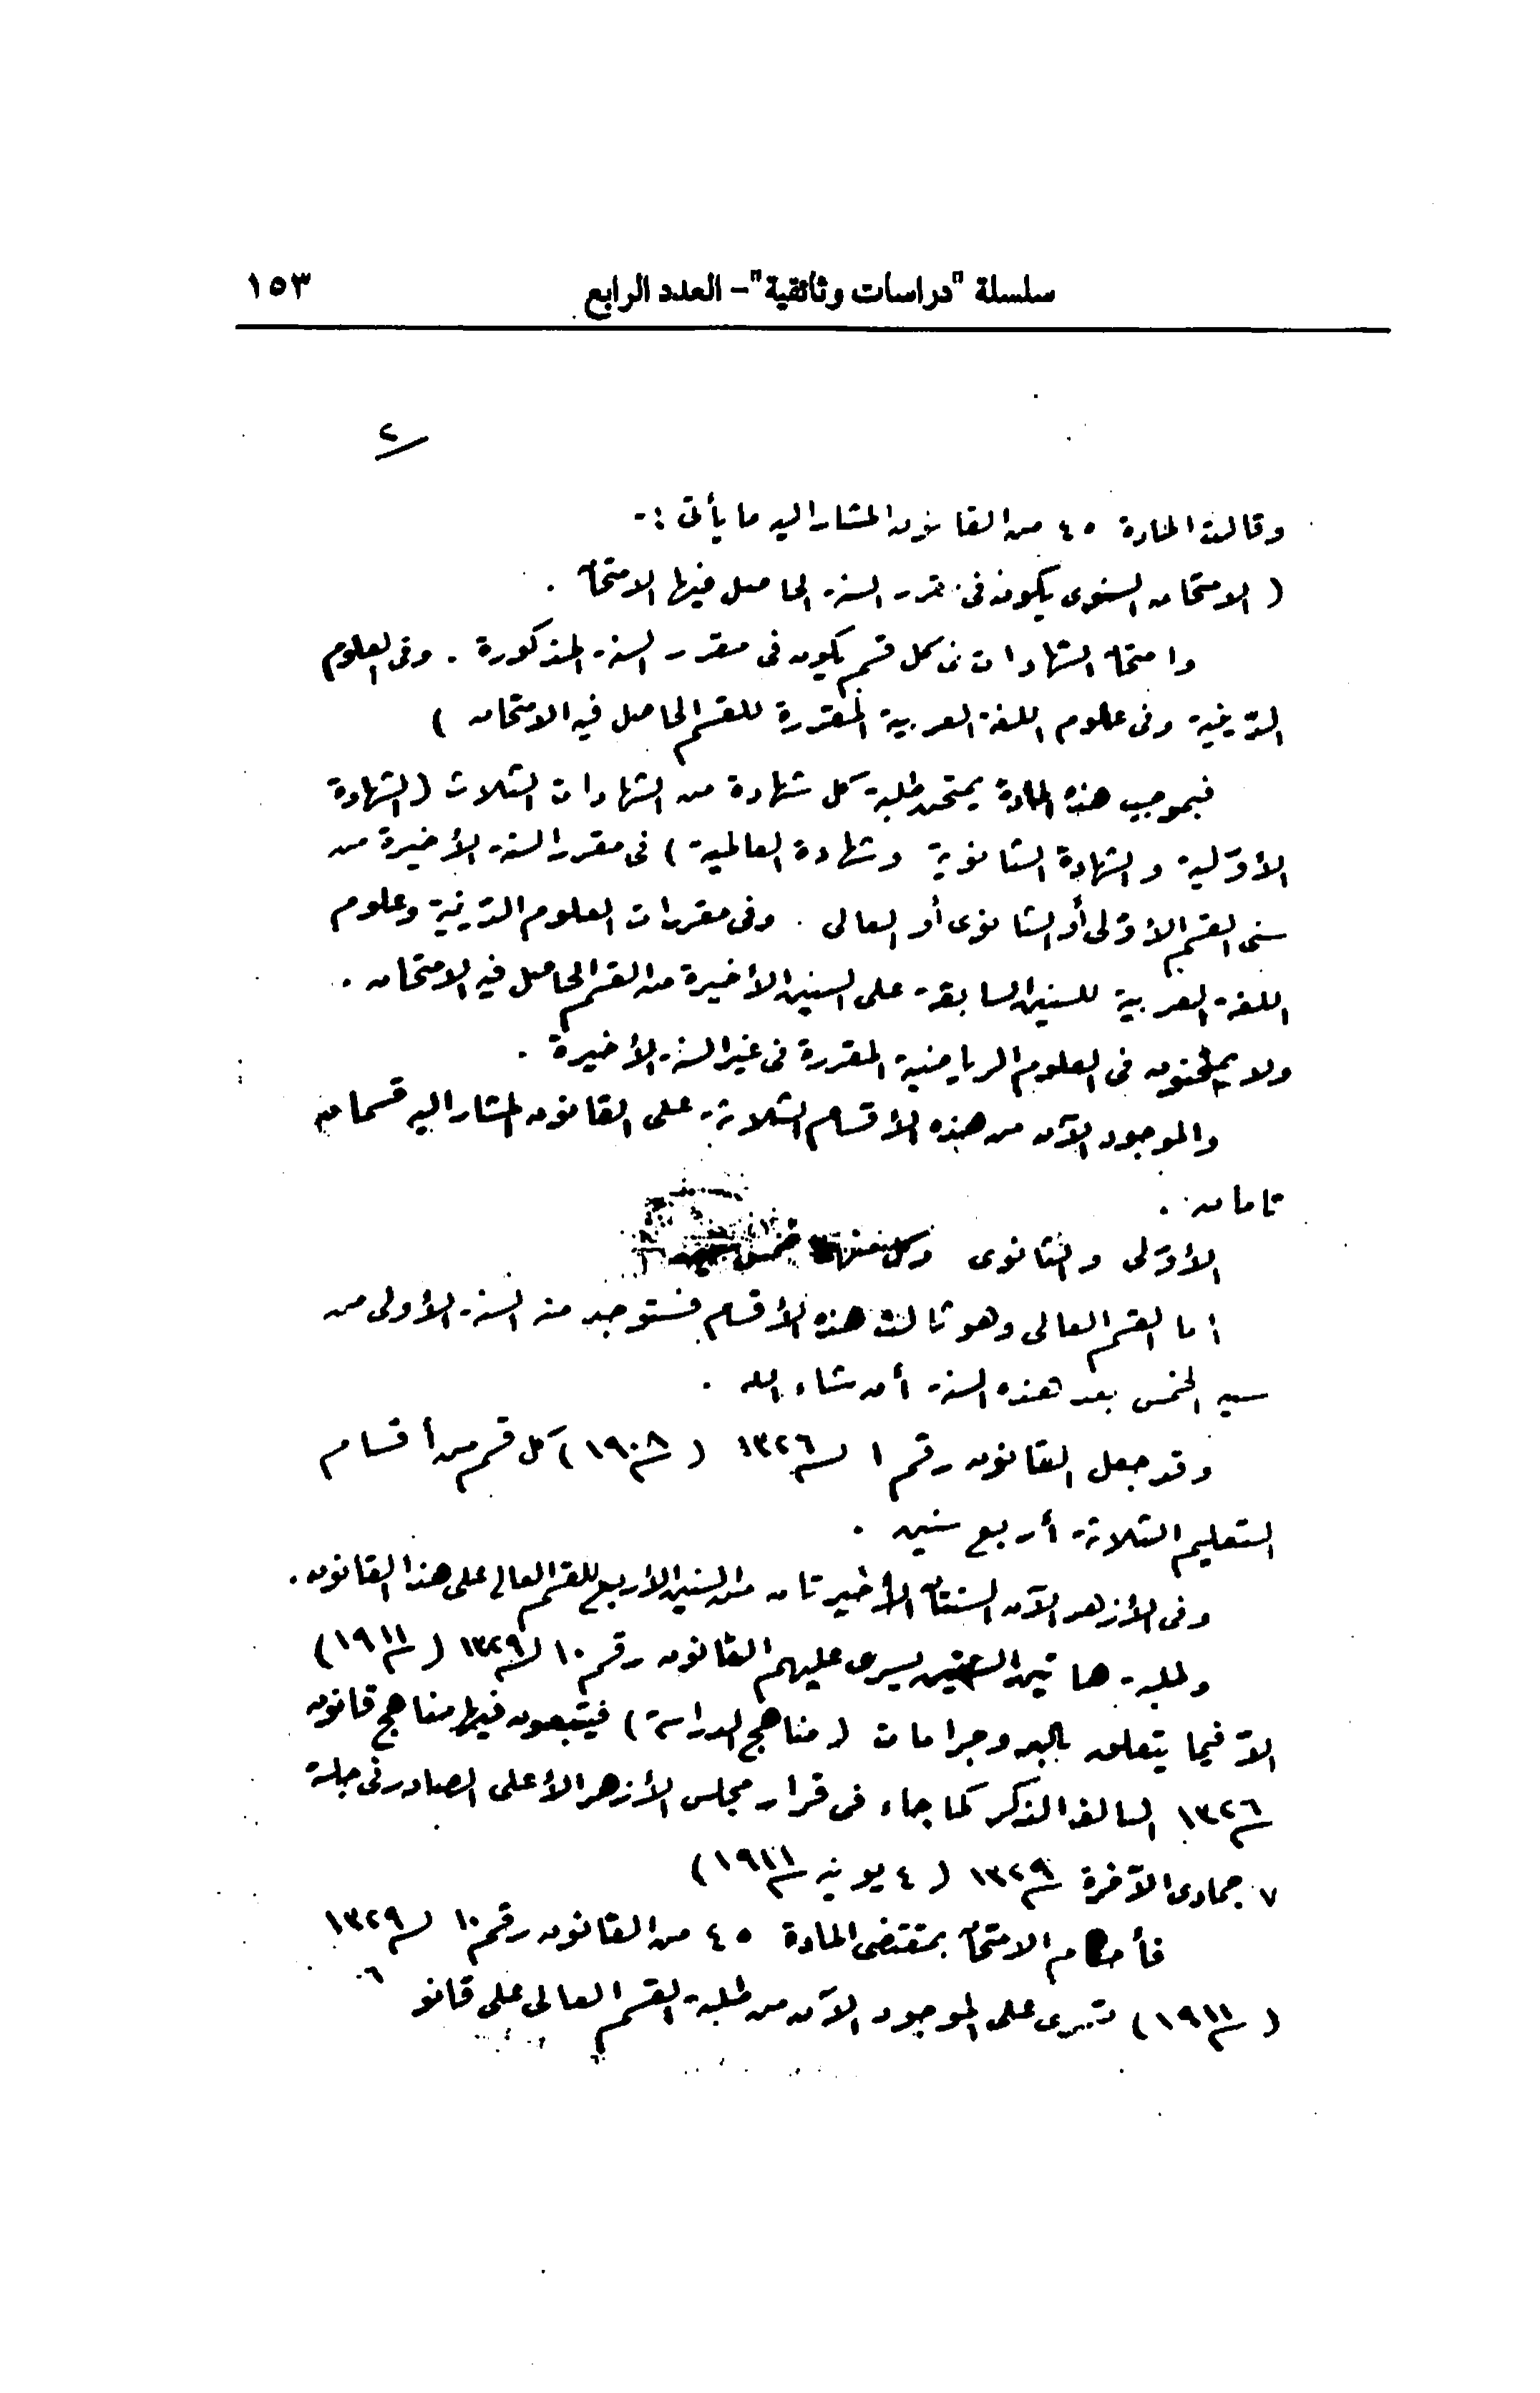 سلسلة "دراسات وثائقية" – العدد الرابع ١٥٣
٢
وقالت المادة ٤٥ من القانون المشار اليه ما يأتى :-
( الامتحان السنوى يكون فى مقرر السنة الحاصل فيها الامتحان .
وامتحان الشهادات فى كل قسم يكون فى مقرر السنة المذكورة . وفى العلوم
الدّينية وفى علوم اللغة العربية المقررة للقسم الحاصل فيه الامتحان )
فبموجب هذه المادة يمتحن طلبة كل شهادة من الشهادات الثلاث ( الشهادة
الأوّلية والشهادة الثانوية وشهادة العالمية ) فى مقرر السنة الأخيرة من
سنى القسم الأوّلى أو الثانوى أو العالى . وفى مقررات العلوم الدّينية وعلوم
اللغة العربية للسنين السابقة على السنين الأخيرة من القسم الحاصل فيه الامتحان .
ولا يمتحنون فى العلوم الرياضية المقررة فى غير السنة الأخيرة .
والموجود الآن من هذه الأقسام الثلاثة على القانون المشار اليه قسمان
تامان .
الأوّلى والثانوى وكل منهما خمس
اما القسم العالى وهو ثالث هذه الأقسام فستوجد منه السنة الأولى من
سنيه الخمس بعد هذه السنة أن شاء الله .
وقد جعل القانون رقم ١ لسنة ١٣٢٦ ( سنة ١٩٠٨ ) كل قسم من أقسام
التعليم الثلاثة أربع سنين .
وفى الأزهر الآن السنتان الأخيرتان من السنين الأربع للقسم العالى على هذا القانون .
وطلبة هاتين السنتين يسرى عليهم القانون رقم ١٠ لسنة ١٣٢٩ ( سنة ١٩١١ )
الاّ فيما يتعلق بالبروجرامات ( مناهج الدراسة ) فيتبعون فيها مناهج قانون
سنة ١٣٢٦ السالف الذكر كما جاء فى قرار مجلس الأزهر الأعلى الصادر فى جلسة
٧ جمادى الآخرة سنة ١٣٢٩ ( ٤ يونيه سنة ١٩١١ )
فأحكام الامتحان بمقتضى المادة ٤٥ من القانون رقم ١٠ لسنة ١٣٢٩
( سنة ١٩١١ ) تسرى على الموجود الآن من طلبة القسم العالى على قانون